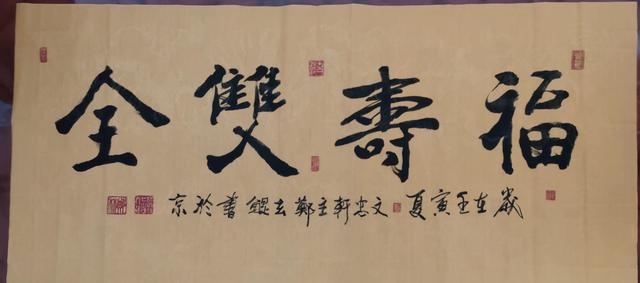 福壽雙全
歲在壬寅夏文忠軒主鄭玄鯤書於京